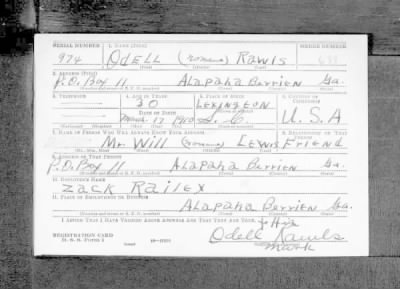 SERIAL NUMBER 1. NAME (Print) ORDER NUMBER
974 ODELL (none) RAWLS
(First) (Middle) (Last)
2. ADDRESS (Print)
P.O. Box 11 Alapaha Berrien Ga.
(Number and street or R. F. D. number) (Town) (County) (State)
3. TELEPHONE 4. AGE IN YEARS 5. PLACE OF BIRTH 6. COUNTRY OF CITIZENSHIP
30 LEXINGTON
DATE OF BIRTH
1910 S. C. U.S.A
7. NAME OF PERSON WHO WILL ALWAYS KNOW YOUR ADDRESS 8. RELATIONSHIP OF THAT PERSON
Mr. Will (none) Lewis Friend
(Mr., Mrs., Miss) (First) (Middle) (Last)
9. ADDRESS OF THAT PERSON
P.O. Box 11 Alapaha Berrien Ga.
(Number and street or R. F. D. number) (Town) (County) (State)
10. EMPLOYER'S NAME
Zack Railex
11. PLACE OF EMPLOYMENT OR BUSINESS
Alapaha Berrien Ga.
(Number and street or R. F. D. number) (Town) (County) (State)
I AFFIRM THAT I HAVE VERIFIED ABOVE ANSWERS AND THAT THEY ARE TRUE.
X His
REGISTRATION CARD Odell Rawls
D. S. S. FORM 1 mark